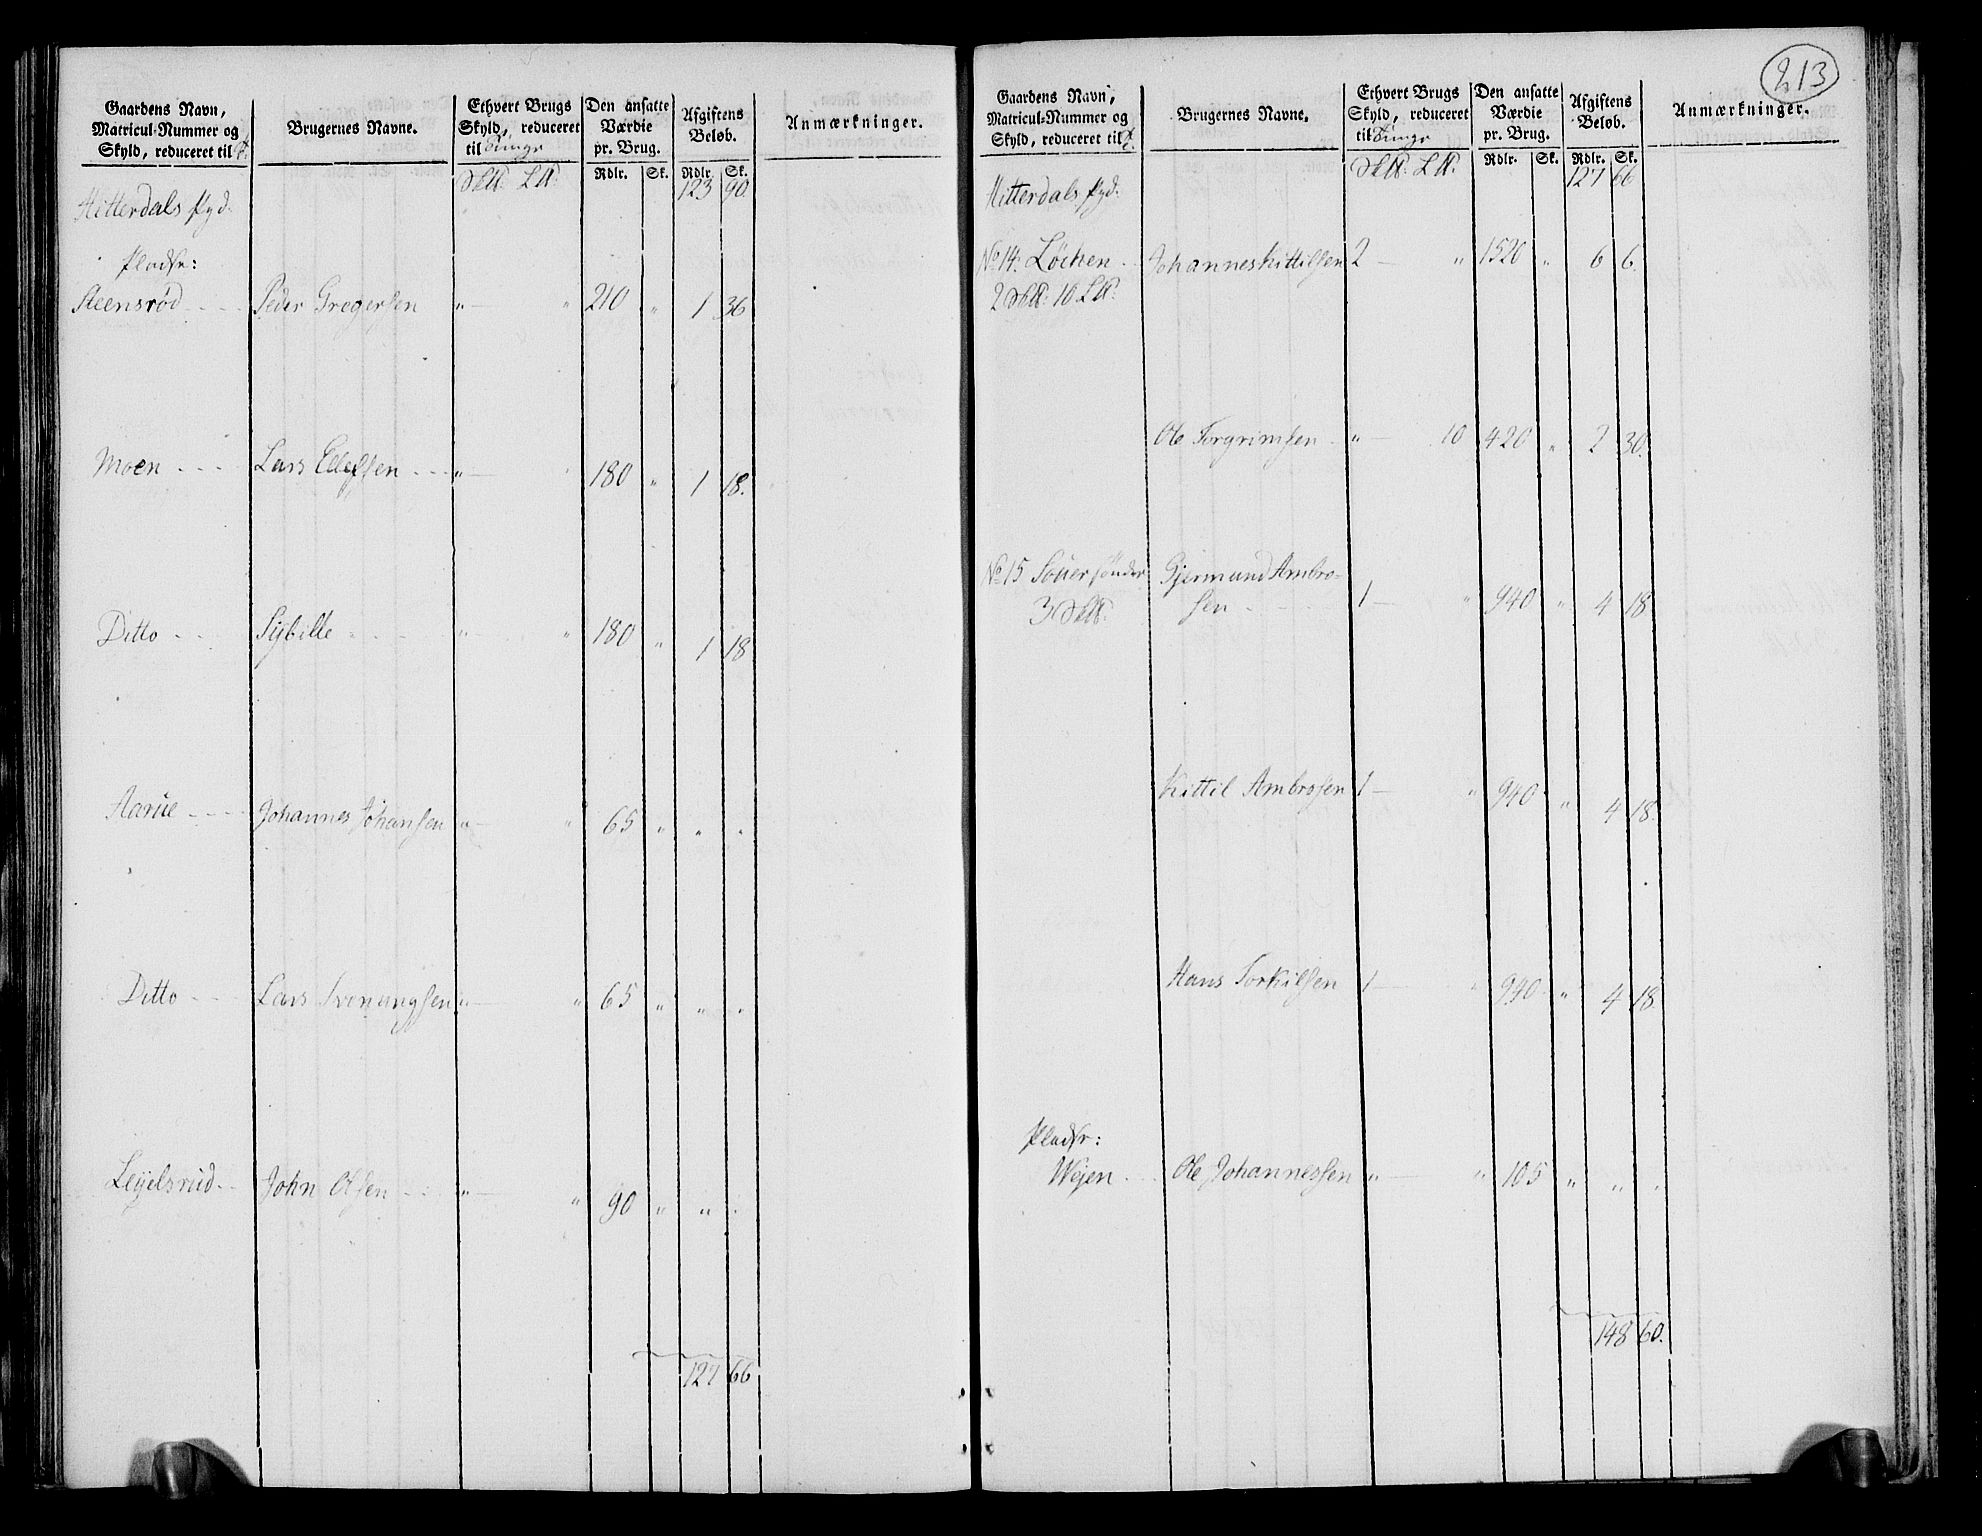 Gaardens Navn, Matricul-Nummer og Skyld, reduceret til | Brugernes Navne. | Ethvert Brugs Skyld, reduceret til Tunge | Den ansatte Værdie pr. Brug. | Afgiftens Beløb. | Anmærkninger.
Rdlr. Sk. Rdlr. Sk.
123 90.
Hitterdals
Pladse:
Steensrød Peder Gregersen " " 210 " 1 36
Moen Lars Ellefsen " " 180 " 1 18.
Ditto Sÿbille " " 180 " 1 18
Aarue Johannes Johansen " " 65 " " "
Ditto Lars Svenungsen " " 65 " " "
Leyelsrud John Olsen " " 90 " " "
127 66
213
Gaardens Navn, Matricul-Nummer og Skyld, reduceret til | Brugernes Navne. | Ethvert Brugs Skyld, reduceret til Tunge | Den ansatte Værdie pr. Brug. | Afgiftens Beløb. | Anmærkninger.
Rdlr. Sk. Rdlr. Sk.
127 66
Hitterdals
No 14: Löchen Johannes Kittilsen 2 " 1520 " 6 6.
2 10
Ole Torgrimsen " 10 420 " 2 30.
No 15 Söuer Gjermund Ambro-
3 sen 1 " 940 " 4 18
Kittil Ambrosen 1 " 940 " 4 18.
Hans Torkilsen 1 " 940 " 4 18
Pladse:
Wejen Ole Johannessen " " 105 " " "
148 60.